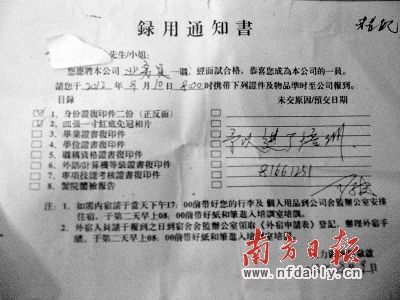 録用通知書
先生/小姐:
您應聘本公司 業務員 一職，經面試合格，恭喜您成為本公司的一員。
請您于 2012 年 9 月 10 日 8:00 时携带下列證件及物品準时至公司報到。
目錄 未交原因/預交日期
1. 身份證復印件二份（正反面）
2. 兩張一寸紅底免冠相片
3. 畢業證書復印件
4. 學位證書復印件
5. 職稱資格證書復印件
6. 外語/計算機等級證書復印件
7. 專項技能考核證書復印件
8. 醫院體檢報告
予以進了培训
81661251
注：1. 如需内宿請于當天下午17：00前帶好您的行李及個人用品到公司舍監辦公室安排
住宿，于第二天早上08：00前帶好紙和筆進入培訓室培訓。
2. 外宿人員請于報到之日到宿舍舍監辦公室領取《外宿申請表》登記，辦理外宿手
續。于第二天早上08：00前帶好紙和筆進入培訓室培訓。
南方日報
www.nfdaily.cn